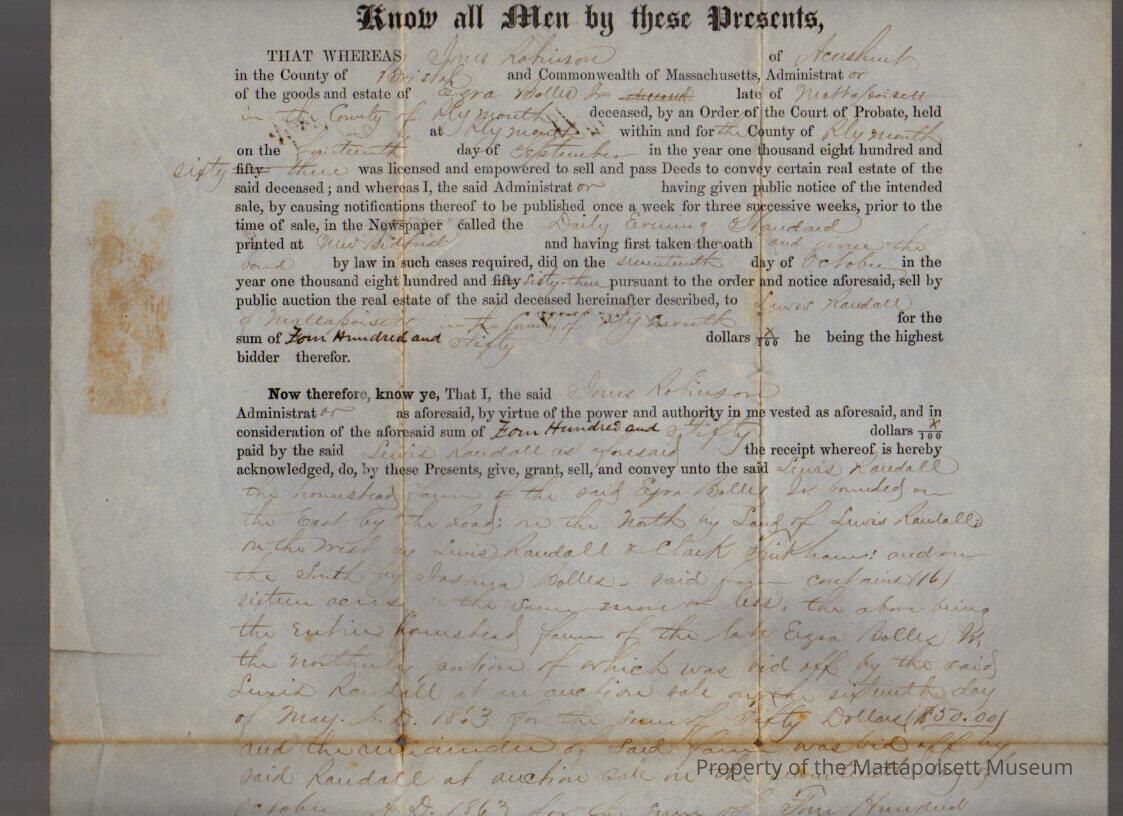 Know all Men by these Presents,
THAT WHEREAS Robinson of Acushnet
in the County of Bristol and Commonwealth of Massachusetts, Administrat or
of the goods and estate of Ezra Bolles Jr deceased late of Mattapoisett
in the County of Plymouth deceased, by an Order of the Court of Probate, held
at Plymouth within and for the County of Plymouth
on the day of September in the year one thousand eight hundred and
sixty fifty three was licensed and empowered to sell and pass Deeds to convey certain real estate of the
said deceased ; and whereas I, the said Administrat or having given public notice of the intended
sale, by causing notifications thereof to be published once a week for three successive weeks, prior to the
time of sale, in the Newspaper called the Daily Evening Standard
printed at New Bedford and having first taken the oath and given the
bond by law in such cases required, did on the seventeenth day of October in the
year one thousand eight hundred and fifty Sixty-three pursuant to the order and notice aforesaid, sell by
public auction the real estate of the said deceased hereinafter described, to Lewis Randall
of Mattapoisett in the County of Plymouth for the
sum of Four Hundred and Fifty dollars x/100 he being the highest
bidder therefor.
Now therefore, know ye, That I, the said Robinson
Administrat or as aforesaid, by virtue of the power and authority in me vested as aforesaid, and in
consideration of the aforesaid sum of Four Hundred and Fifty dollars x/100
paid by the said Lewis Randall as aforesaid the receipt whereof is hereby
acknowledged, do, by these Presents, give, grant, sell, and convey unto the said Lewis Randall
the homestead farm of the said Ezra Bolles Jr bounded on
the East by the Road; on the North by Land of Lewis Randall;
on the West by Lewis Randall & Clark Tinkham: and on
the South by Joshua Bolles. said farm contains (16)
sixteen acres the same more or less. the above being
the entire homestead farm of the late Ezra Bolles Jr.
the northerly portion of which was bid off by the said
Lewis Randall at an auction sale on the sixteenth day
of May. A.D. 1863 for the sum of Fifty Dollars ($50.00)
and the remainder of said farm was bid off by
said Randall at auction sale on the day of
October A.D. 1863 for the sum of Four Hundred
Property of the Mattapoisett Museum